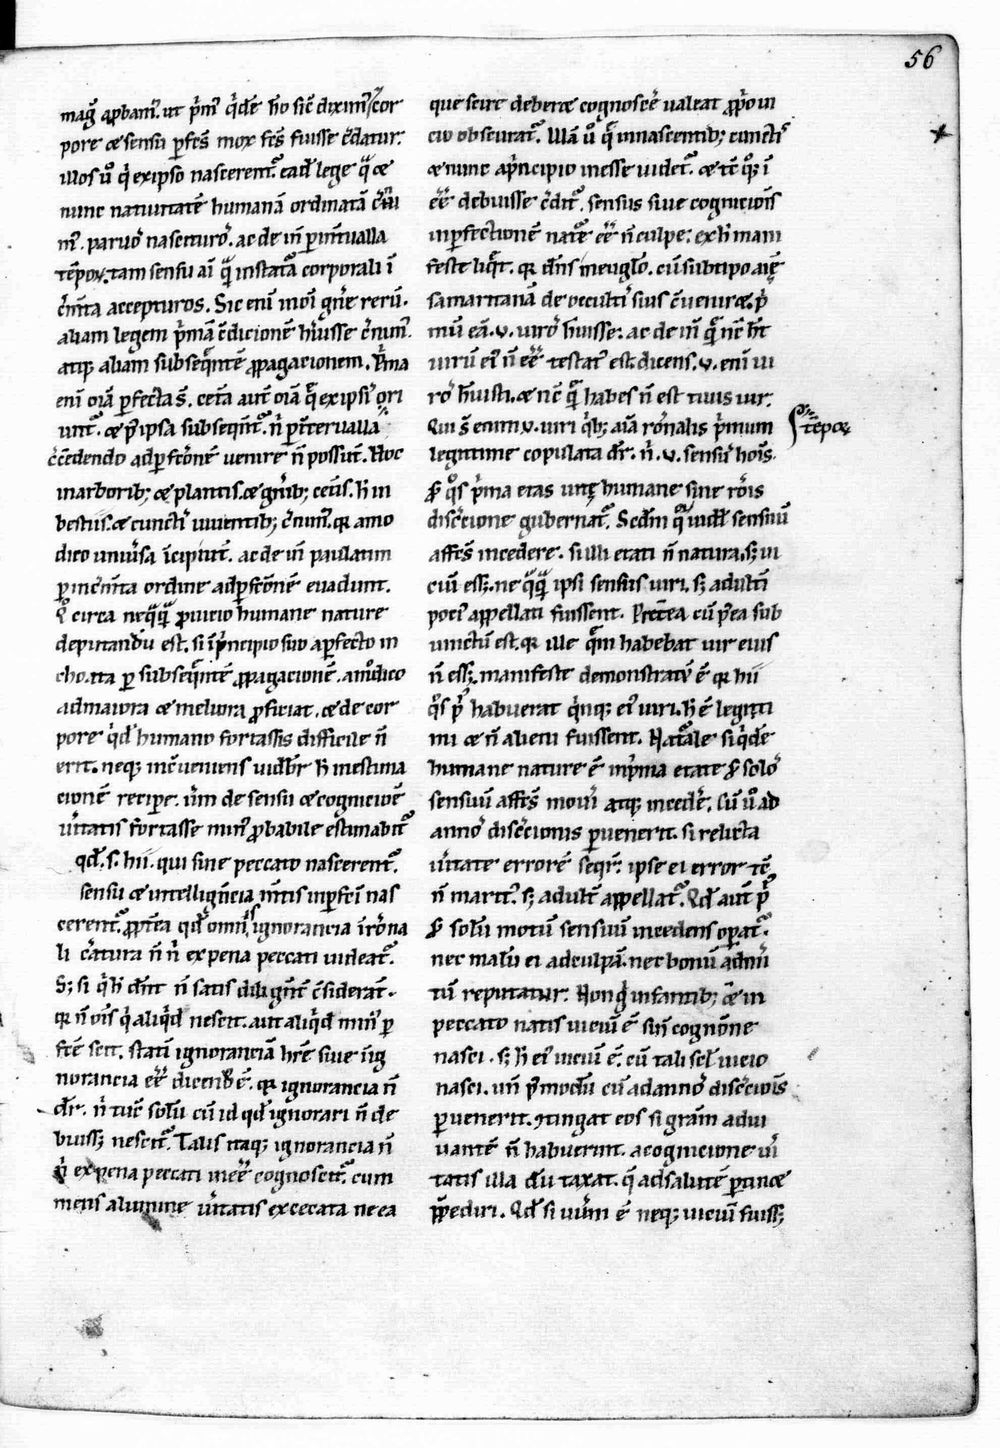 56
magꝭ ap̱bam᷒. ut p̾m᷒ q̾dē ho sic̄ dixim᷒ cor
pore ⁊ sensu ꝑfec̄s mox fc̄s fuisse c̄datur.
illos u̾o q̾ ex ipso nascerent᷑. eadē lege q̾ ⁊
nunc natiuitatē humanā ordinatā
nī. paruoſ nascituroſ. ac de in̄ ꝑ int̾ualla
tēpoꝝ. tam sensu aī q̾ in statᷓa corporali ī
c̾m̄ta accepturos. Sic enī in oī gn̄e rerū.
aliam legem p̾mā c̄dicionē hᷓuisse
atq; aliam subseq̾ntē ꝓpagacionem. P̾ma
enī oīa ꝑfecta s̄. cet̾a aut̄ oīa q̾ ex ipsiſ ori
unt᷑. ⁊ p̾ ipsa subseqn̄t᷑. n̄ ꝑ int̾ualla
c̾scendo ad ꝑfcōnē uenire n̄ possūt. Hoc
in arborib; ⁊ plantis. ⁊ gn̄ib; cet̾is. h̄ in
bestiis. ⁊ cuncti᷒ uiuentib; c̾nim᷒. q̄ a mo
dico uniu̾sa īcipiūt. ac de in̄ paulatim
ꝑ inc̾m̄ta ordine ad ꝑfcōnē euadunt.
Q̾ circa neq̾q̾ ꝓ uicio humane nature
deputandū est. si ī p̾ncipio suo a ꝑfecto in
cho.ita ꝑ subseq̾ntē ꝓpagacionē. a modico
ad maiora ⁊ meliora ꝓficiat. ⁊ de cor
pore q̾dē humano fortassis difficile n̄
erit. neq; inc̄ueniens uidebr̄ h̄ in estima
cionē recipe. Uꝝ de sensu ⁊ cognicionē
u̾itatis fortasse min᷒ ꝓbabile estimabit᷑
qd̄. s. hii. qui sine peccato nascerent᷑.
sensu ⁊ intelligēcia m̄tis inꝑfc̄i nas
cerent᷑. ꝓpt̾ea qd̄ omnis ignorancia ī rōna
li c̾atura n̄ n̄ ex pena peccati uideat᷑.
S; si q̾ h̄ dn̄t n̄ satis dilign̄t c̄siderant.
q̄ n̄ oīs q̾ aliq̾d nescit. aut aliq̾d min᷒ ꝑ
fc̄e scit. statī ignoranciā hr̄e siue ī ig
norancia ēē dicend᷒ ē. q̄ ignorancia n̄
dr̄. n̄ tūc solū cū id qd̄ ignorari n̄ de
buiss; nescit᷑. Talis itaq; ignorancia n̄
n̄ ex pena peccati ineē cognoscit᷑. cum
mens a lumine u̾itatis excecata nec ea
que scire debeat cognosce̾ ualeat ꝓprio ui
cio obscurat᷑. Illā u̾o q̾ in nascentib; cuncti᷒
⁊ nunc a p̾ncipio inesse uidet᷑. ⁊ tc̄ q̾q; ī
ēē debuisse c̾dit᷑. sensus siue cognicionis
inꝑfectionē nat᷑e ēē n̄ culpe. ex h̄ mani
feste liq̾t. q̄ dn̄s in eugl̄o. cū sub tipo aīe
samaritanā de occultiſ suis c̄ueniret. p̾
mū eā. v. uiroſ hᷓuisse. ac de in̄ q̾ nc̄ hᷓt
uirū ei᷒ n̄ ēē testat᷒ est dicens. v. enī ui
roſ hᷓuisti. ⁊ nc̄ q̾ habes n̄ est tuus uir.
Qui s̄ enim. v. uiri q̾b; aīa rōnalis p̾mum tēpoꝝ
legitime copulata dr̄. n̄. v. sensuſ hoīs.
P̾ q̾s p̾ma etas uite humane sine rōis
discc̾ione gubernat᷑. Secd̄m q̾ uidel̄ sensuū
affec̄s incedere. si illi etati n̄ natura. s; ui
ciū ess;. neq̾q̾ ipsi sensus uiri. s; adult̾i
poci᷒ appellati fuissent. Pret̾ea cū p̾ea sub
iunctū est. q̄ ille q̾m habebat uir eius
n̄ ess;. manifeste demonstratū ē q̄ hii
q̾s p̾᷒ habuerat q̾nq; ei᷒ uiri. h̄ ē legiti
mi ⁊ n̄ alieni fuissent. Nat᷑ale siq̾dē
humane nature ē in p̾ma etate p̾ soloſ
sensuū affec̄s moueri atq; incede̾. Cū u̾o ad
annoſ discc̾ionis ꝑuenerit. si relicta
u̾itate errorē seqr̄. ipse ei error tē
n̄ marit᷒. s; adult̾ appellat᷑. Qd̄ aut̄ p̾᷒
p̾ solū motū sensuū incedens oꝑat᷑.
nec malū ei ad culpā. nec bonū ad m̄i
tū reputatur. Non q̾ infantib; ⁊ in
peccato natis uiciū ē sine cognōne
nasci. s; h̄ ei᷒ uiciū ē. cū tali scl̄ uicio
nasci. un̄ p᷒ modū cū ad annoſ discc̾ionis
ꝑuenerit. ꝯtingat eos si grām adiu
uantē n̄ habuerint. a cognicione u̾i
tatis illa dū taxat. q̾ ad salutē ꝑtinet
p̄pediri. Qd̄ si uiciū ē neq; uiciū fuiss;